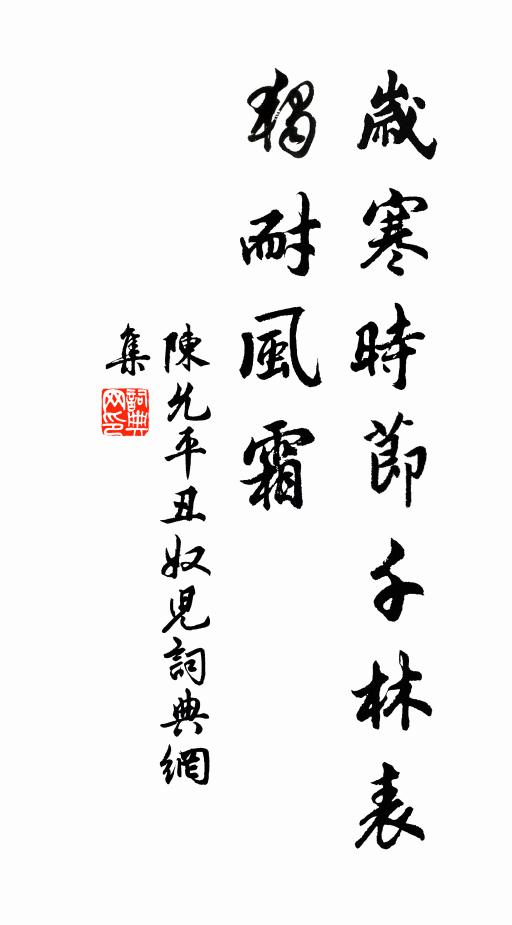 歲寒時節千林表
獨耐風霜
陳允平丑奴児詞典網
集
詞典
网印